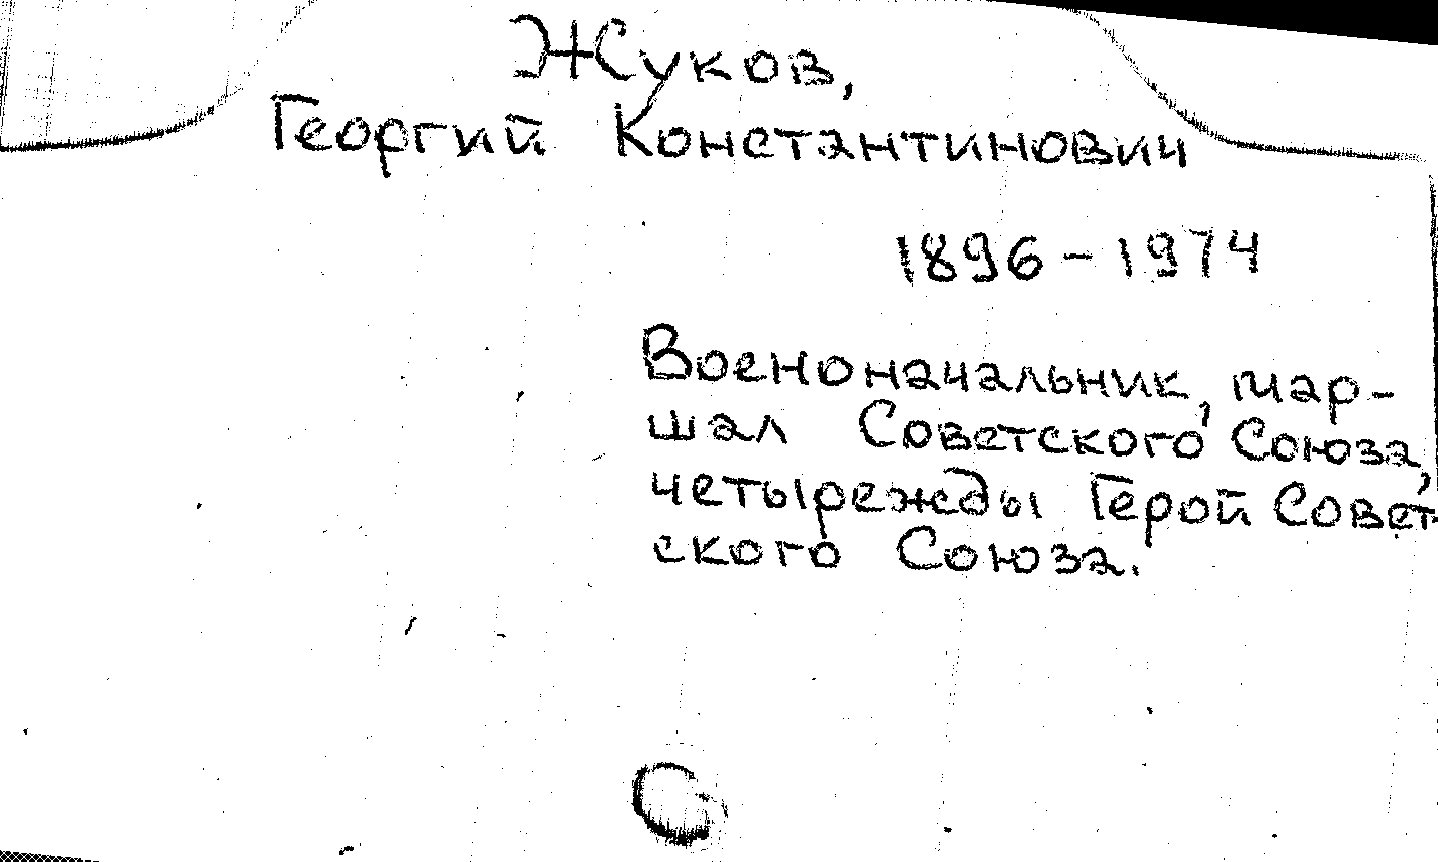 Жуков,
Георгий Константинович
1896-1974
Военоначальник, мар-
шал Советского Союза,
четырежды Герой Совет-
ского Союза.